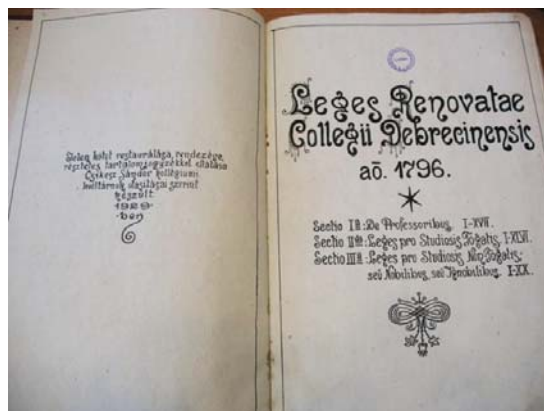 Jelen kötet restaurálása, rendezése,
részletes tartalomjegyzékkel ellátása
Csikesz Sándor kollégiumi
levéltárnok utasításai szerint
készült
1929
-ben
Leges Renovatae
Collegii Debrecinensis
aō. 1796.
Sectio Iª: De Professoribus. I-XVII.
Sectio IIda: Leges pro Studiosis Togatis, I-XLVI.
Sectio IIIa: Leges pro Studiosis Non Togatis,
seū Nobilibus, seū Ignobilibus. I-XX.